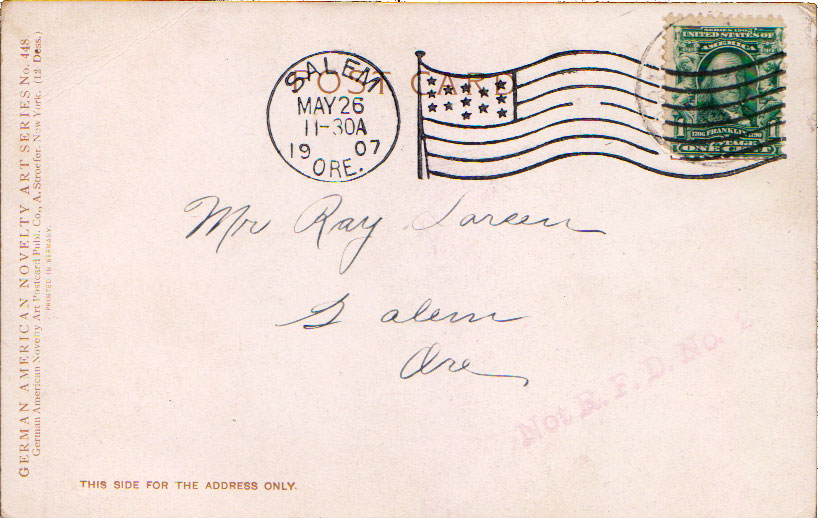 GERMAN AMERICAN NOVELTY ART SERIES No. 448.
German American Novelty Art Postcard Publ. Co., A. Stroefer, New York. (12 Dess.)
PRINTED IN GERMANY.
POST CARD
SALEM
MAY 26
11-30A
1907
ORE.
SERIES 1902
UNITED STATES OF
AMERICA
1706 FRANKLIN 1790
POSTAGE
ONE CENT
Mr Ray Larsen
Salem
Ore
Not R. F. D. No.
THIS SIDE FOR THE ADDRESS ONLY.